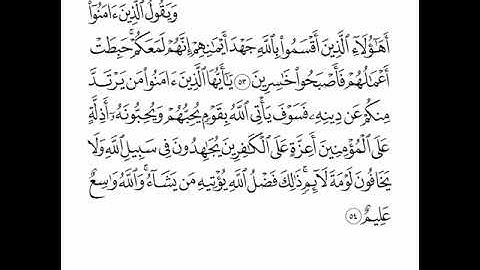 وَيَقُولُ ٱلَّذِينَ ءَامَنُوٓا۟
أَهَـٰٓؤُلَآءِ ٱلَّذِينَ أَقْسَمُوا۟ بِٱللَّهِ جَهْدَ أَيْمَـٰنِهِمْ إِنَّهُمْ لَمَعَكُمْ ۚ حَبِطَتْ
أَعْمَـٰلُهُمْ فَأَصْبَحُوا۟ خَـٰسِرِينَ ٥٣ يَـٰٓأَيُّهَا ٱلَّذِينَ ءَامَنُوا۟ مَن يَرْتَدَّ
مِنكُمْ عَن دِينِهِۦ فَسَوْفَ يَأْتِى ٱللَّهُ بِقَوْمٍ يُحِبُّهُمْ وَيُحِبُّونَهُۥٓ أَذِلَّةٍ
عَلَى ٱلْمُؤْمِنِينَ أَعِزَّةٍ عَلَى ٱلْكَـٰفِرِينَ يُجَـٰهِدُونَ فِى سَبِيلِ ٱللَّهِ وَلَا
يَخَافُونَ لَوْمَةَ لَآئِمٍ ۚ ذَٰلِكَ فَضْلُ ٱللَّهِ يُؤْتِيهِ مَن يَشَآءُ ۚ وَٱللَّهُ وَٰسِعٌ
عَلِيمٌ ٥٤